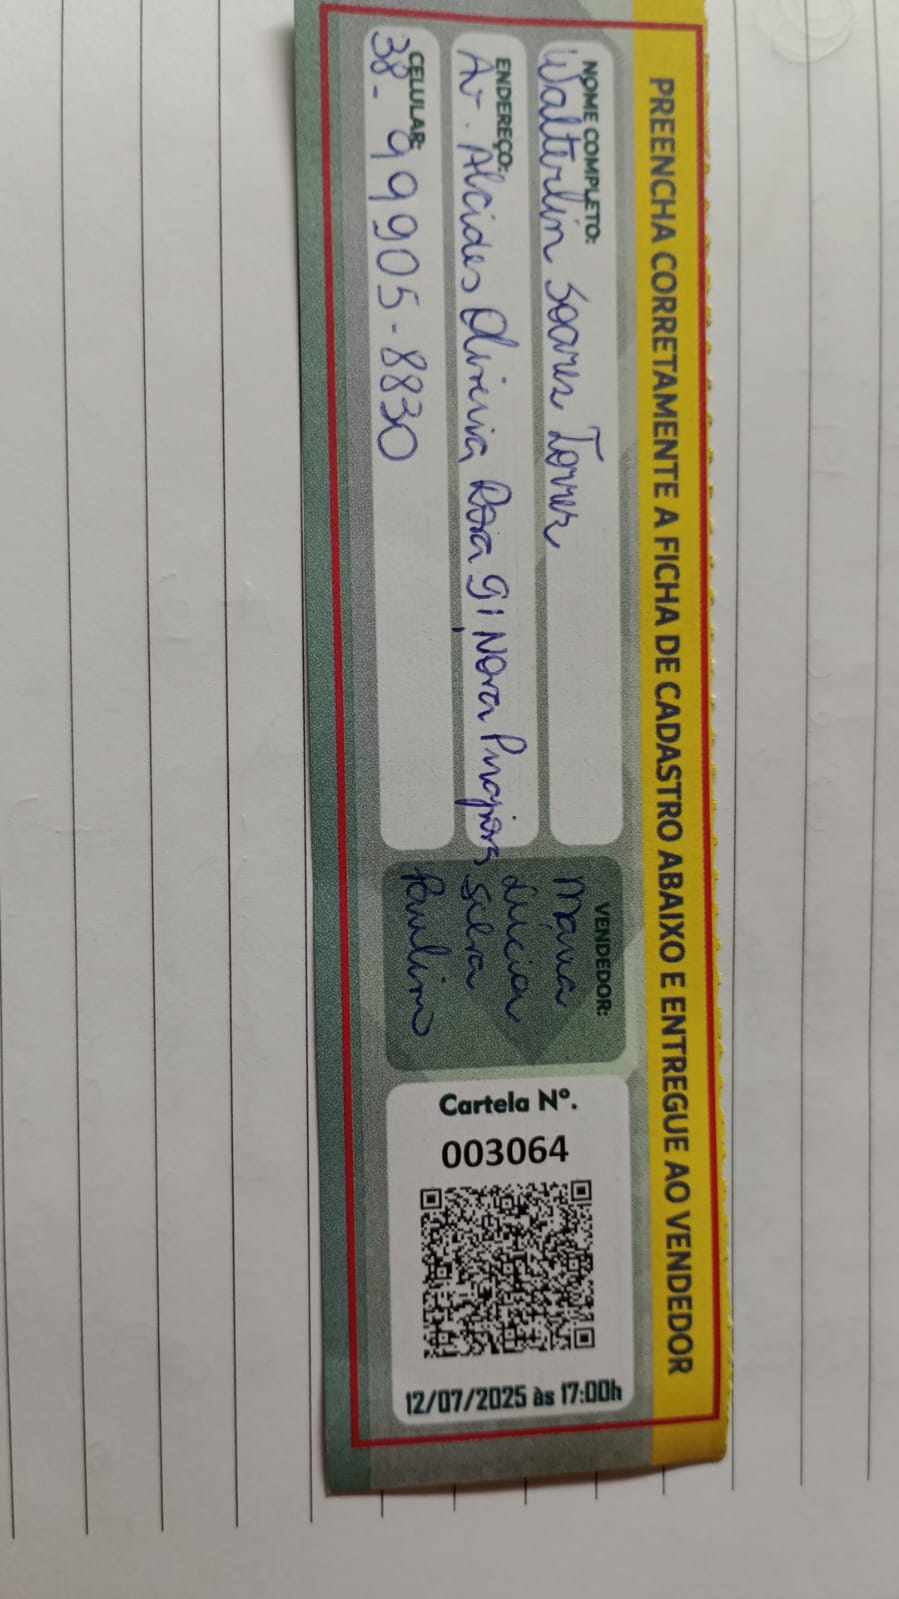 PREENCHA CORRETAMENTE A FICHA DE CADASTRO ABAIXO E ENTREGUE AO VENDEDOR
NOME COMPLETO:
Walterlin Soares Torres
ENDEREÇO:
Av. Alcides Oliveira Rosa 91, Nova Pirapora
CELULAR:
38- 99905-8830
VENDEDOR:
Maria
Lúcia
Silva
Paulino
Cartela Nº.
003064
12/07/2025 às 17:00h